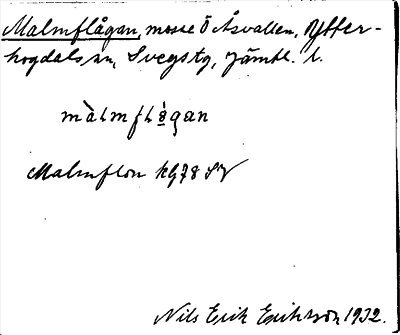 Malmflågan, mosse Ö Åsvallen, Ytter-
hogdals sn, Svegs tg, Jämtl. l.
màlmflågan
Malmflon kg78 SV
Nils Erik Eriksson 1932.